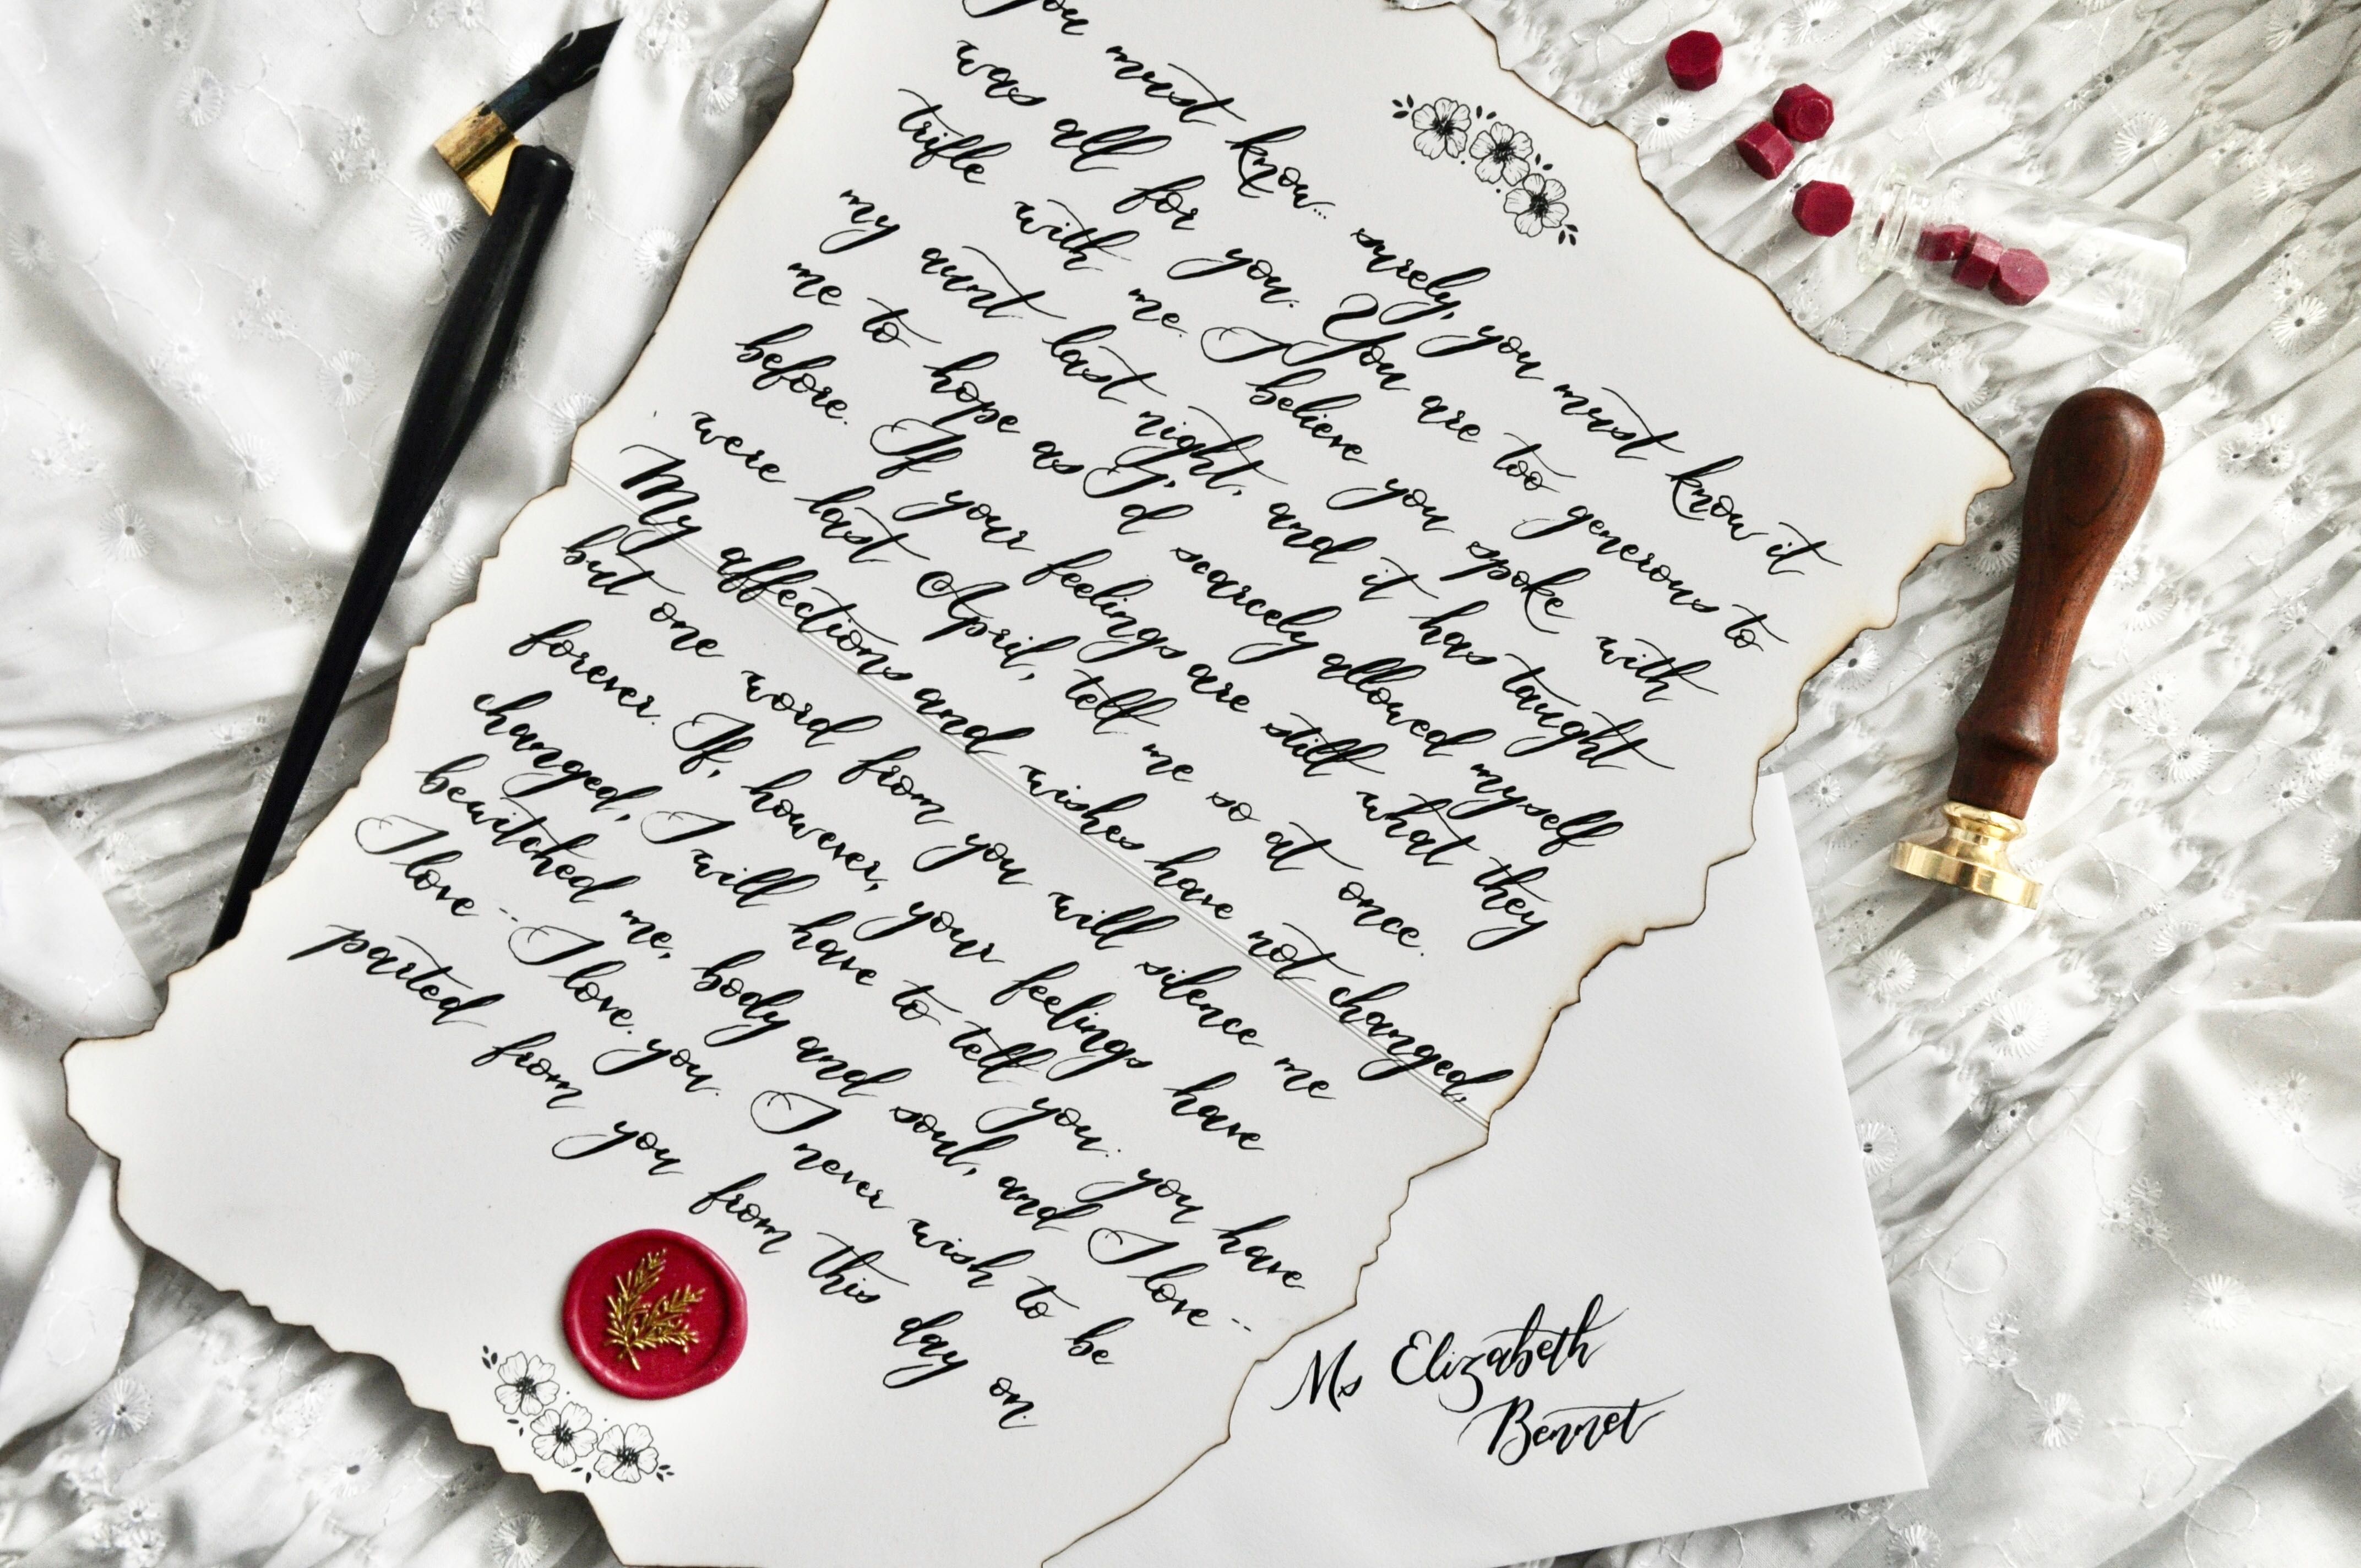 you must know... surely, you must know it
was all for you. You are too generous to
trifle with me. I believe you spoke with
my aunt last night, and it has taught
me to hope as I'd scarcely allowed myself
before. If your feelings are still what they
were last April, tell me so at once.
My affections and wishes have not changed,
but one word from you will silence me
forever. If, however, your feelings have
changed, I will have to tell you: you have
bewitched me, body and soul, and I love--
I love-- I love you. I never wish to be
parted from you from this day on.
Ms Elizabeth
Bennet